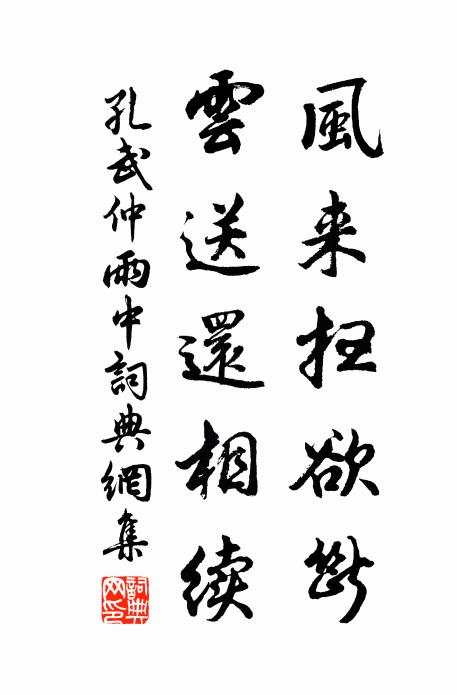 風来狂欲断
雲送還相续
孔武仲雨中詞典網集
詞典
网印